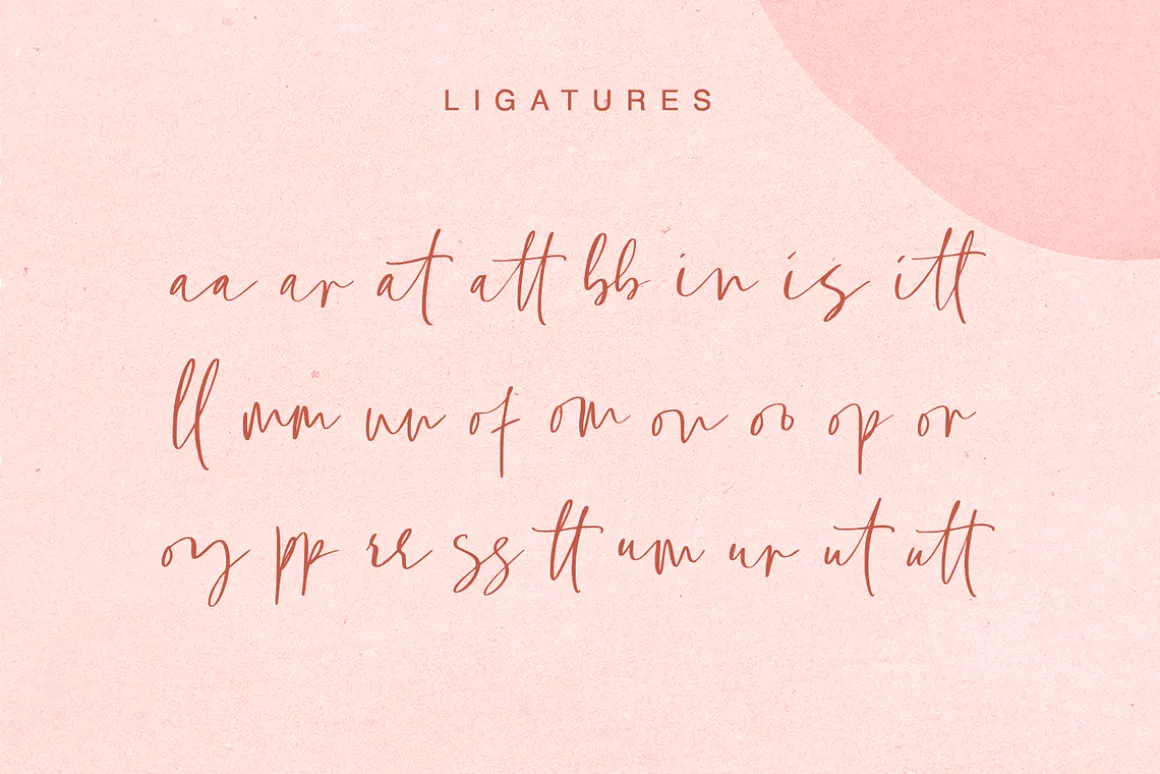 LIGATURES
aa ar at att bb in is itt
ll mm nn of om on oo op or
oy pp rr ss tt um ur ut utt